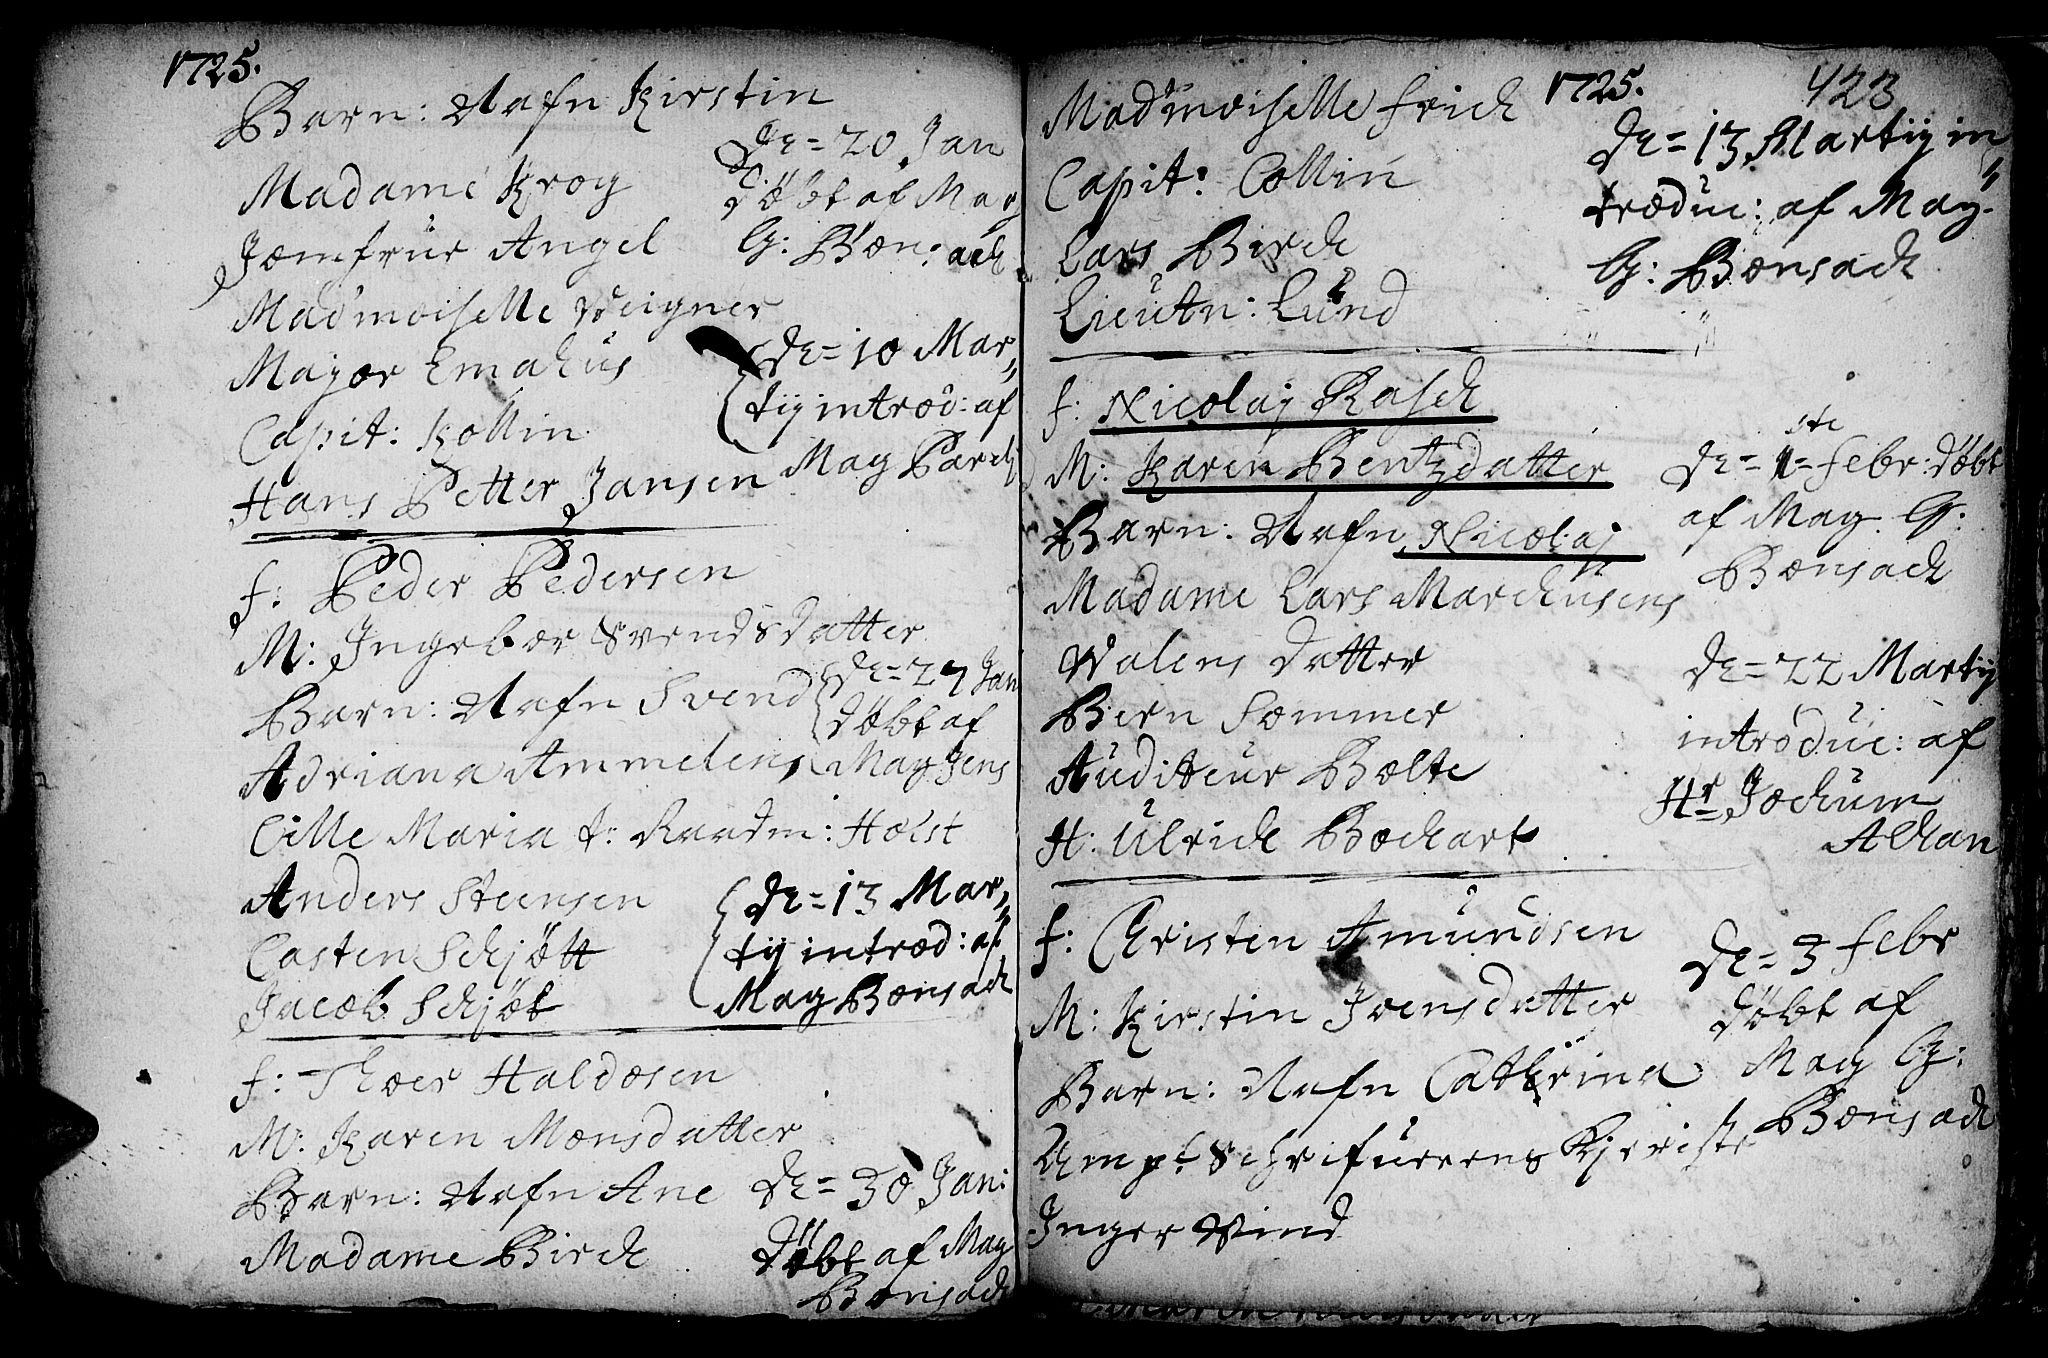 1725.
Barn: Nafn Kirstin
Madame Krog
Jomfrue Angel
Madmoiselle Weigner
Major Emahus
Capit: Kollin
Hans Petter Jansen
De= 20 Jan
Døbt af Mag
G: Bonsach
De= 10 Mar„
tij introd: af
Mag Barck
f: Peder Pedersen
M: Ingebor Svendsdatter
Barn: Nafn Svend
Adriana Ammelens
Cille Maria f: Raadm: Holst
Anders Steensen
Casten Schjøtt
Jacob Schjøt
De= 27 Jan
Døbt af
Mag Jens
De= 13 Mar„
tij introd: af
Mag Bonsach
f: Thoer Haldosen
M: Karen Monsdatter
Barn: Nafn Ane
Madame Birch
De= 30 Jan:
Døbt af Mag
Bonsach
1725.
423
Madmoiselle frich
Capit: Collin
Lars Birch
Lieutn: Lund
De= 13 Martij in„
troduc: af Mag.
G: Bonsach
f: Nicolaj Rasch
M: Karen Bentzdatter
Barn: Nafn Nicolaj
Madame Lars Marchusens
Walens datter
Bern Sommer
Auditeur Bolte
H: Ulrich Bochart
ste
De= 1= febr: Døbt
af Mag. G:
Bonsach
De= 22 Martij
introduc: af
Hr Jochum
Alhan
f: Christen Amundsen
M: Kirstin Joensdatter
Barn: Nafn Cathrina
Ampt Schrifuerens Kjeriste
Inger Wind
De= 3 febr
Døbt af
Mag G:
Bonsach